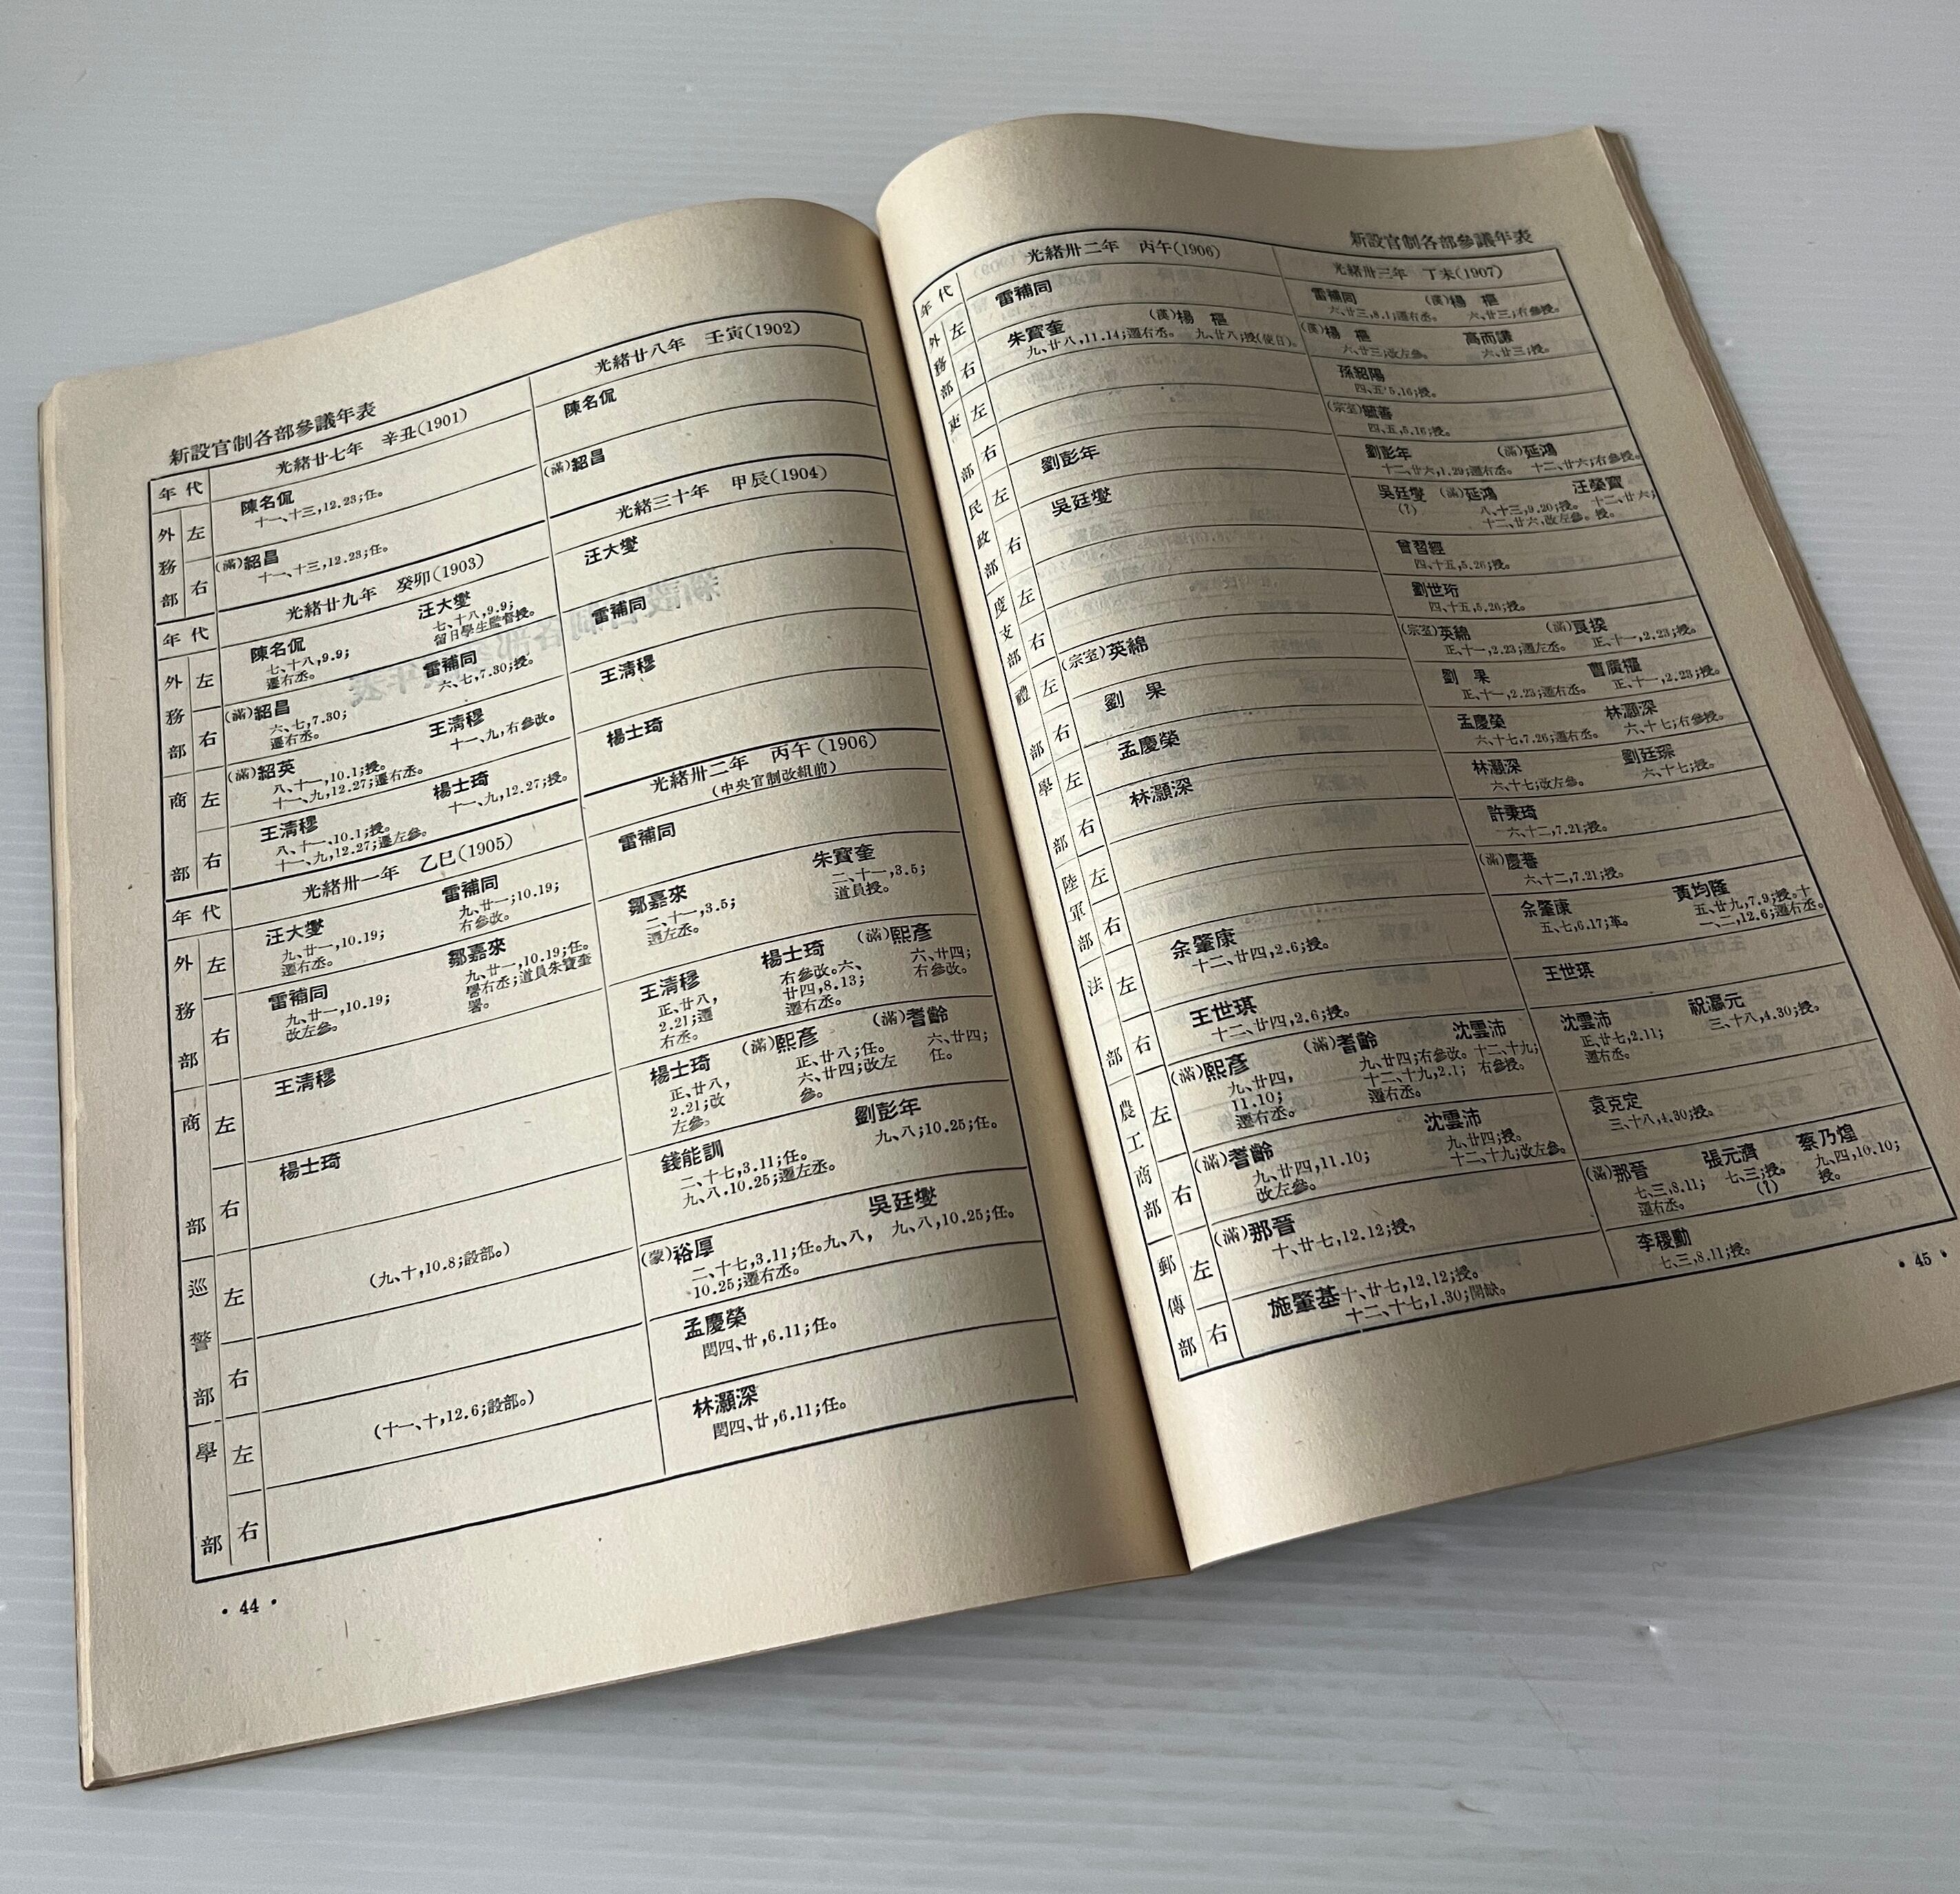 新設官制各部參議年表
年代
光緒廿七年 辛丑(1901)
光緒廿八年 壬寅(1902)
外務部
左
陳名侃
十一、十三,12.23;任。
陳名侃
右
(滿)紹昌
十一、十三,12.23;任。
(滿)紹昌
年代
光緒廿九年 癸卯(1903)
光緒三十年 甲辰(1904)
外務部
左
陳名侃
七、十八,9.9;
遷右丞。
汪大燮
七、十八,9.9;
留日學生監督授。
汪大燮
右
(滿)紹昌
六、七,7.30;
遷右丞。
雷補同
六、七,7.30;授。
雷補同
商部
左
(滿)紹英
八、十一,10.1;授。
十一、九,12.27;遷右丞。
王清穆
十一、九,右參改。
王清穆
右
王清穆
八、十一,10.1;授。
十一、九,12.27;遷左參。
楊士琦
十一、九,12.27;授。
楊士琦
年代
光緒卅一年 乙巳(1905)
光緒卅二年 丙午(1906)
(中央官制改組前)
外務部
左
汪大燮
九、廿一,10.19;
遷右丞。
雷補同
九、廿一;10.19;
右參改。
雷補同
右
雷補同
九、廿一,10.19;
改左參。
鄒嘉來
九、廿一,10.19;任。
署右丞;道員朱寶奎
署。
鄒嘉來
二、十一,3.5;
遷左丞。
朱寶奎
二、十一,3.5;
道員授。
商部
左
王清穆
王清穆
正、廿八,
2.21;遷
右丞。
楊士琦
右參改。六、
廿四,8.13;
遷右丞。
(滿)熙彥
六、廿四;
右參改。
右
楊士琦
楊士琦
正、廿八,
2.21;改
左參。
(滿)熙彥
正、廿八;任。
六、廿四;改左
參。
(滿)耆齡
六、廿四;
任。
巡警部
左
(九、十,10.8;設部。)
錢能訓
二、十七,3.11;任。
九、八,10.25;遷左丞。
劉彭年
九、八;10.25;任。
右
(蒙)裕厚
二、十七,3.11;任。九、八,
10.25;遷右丞。
吳廷燮
九、八,10.25;任。
學部
左
(十一、十,12.6;設部。)
孟慶榮
閏四、廿,6.11;任。
右
林灝深
閏四、廿,6.11;任。
• 44 •
新設官制各部參議年表
年代
光緒卅二年 丙午(1906)
光緒卅三年 丁未(1907)
外務部
左
雷補同
雷補同
六、廿三,8.1;遷右丞。
(漢)楊樞
六、廿三;右參授。
右
朱寶奎
九、廿八,11.14;遷右丞。
(漢)楊樞
九、廿八;授(使日)。
(漢)楊樞
六、廿三;改左參。
高而謙
六、廿三;授。
吏部
左
孫紹陽
四、五,5.16;授。
右
(宗室)毓善
四、五,5.16;授。
民政部
左
劉彭年
劉彭年
十二、廿六,1.29;遷右丞。
(滿)延鴻
十二、廿六;右參授。
右
吳廷燮
吳廷燮
(?)
(滿)延鴻
八、十三,9.20;授。
十二、廿六,改左參。
汪榮寶
十二、廿六;
授。
度支部
左
曾習經
四、十五,5.26;授。
右
劉世珩
四、十五,5.26;授。
禮部
左
(宗室)英綿
(宗室)英綿
正、十一,2.23;遷左丞。
(滿)良揆
正、十一,2.23;授。
右
劉果
劉果
正、十一,2.23;遷右丞。
曹廣權
正、十一,2.23;授。
學部
左
孟慶榮
孟慶榮
六、十七,7.26;遷右丞。
林灝深
六、十七;右參授。
右
林灝深
林灝深
六、十七;改左參。
劉廷琛
六、十七;授。
陸軍部
左
許秉琦
六、十二,7.21;授。
右
(滿)慶蕃
六、十二,7.21;授。
法部
左
余肇康
十二、廿四,2.6;授。
余肇康
五、七,6.17;革。
黃均隆
五、廿九,7.9;授。十
一、二,12.6;遷右丞。
右
王世琪
十二、廿四,2.6;授。
王世琪
農工商部
左
(滿)熙彥
九、廿四,
11.10;
遷右丞。
(滿)耆齡
九、廿四;右參改。
十二、十九,2.1;
遷右丞。
沈雲沛
十二、十九;
右參授。
沈雲沛
正、廿七,2.11;
遷右丞。
祝瀛元
三、十八,4.30;授。
右
(滿)耆齡
九、廿四,11.10;
改左參。
沈雲沛
九、廿四;授。
十二、十九;改左參。
袁克定
三、十八,4.30;授。
郵傳部
左
(滿)那晉
十、廿七,12.12;授。
(滿)那晉
七、三,8.11;
遷右丞。
張元濟
七、三;授。
(?)
蔡乃煌
九、四,10.10;
授。
右
施肇基
十、廿七,12.12;授。
十二、十七,1.30;開缺。
李稷勳
七、三,8.11;授。
• 45 •